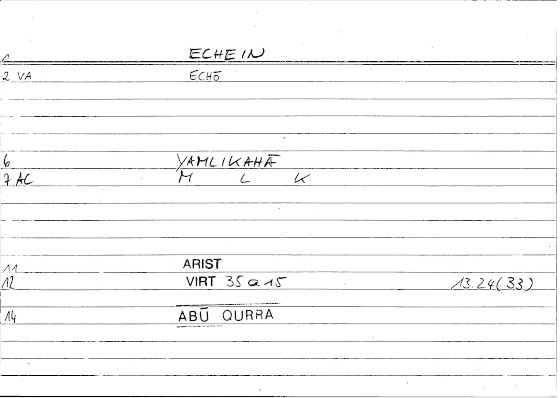 1 ECHEIN
2 VA ECHŌ
6 YAMLIKAHĀ
7 AC M L K
11 ARIST
12 VIRT 35 a 15 13.24(33)
14 ABŪ QURRA